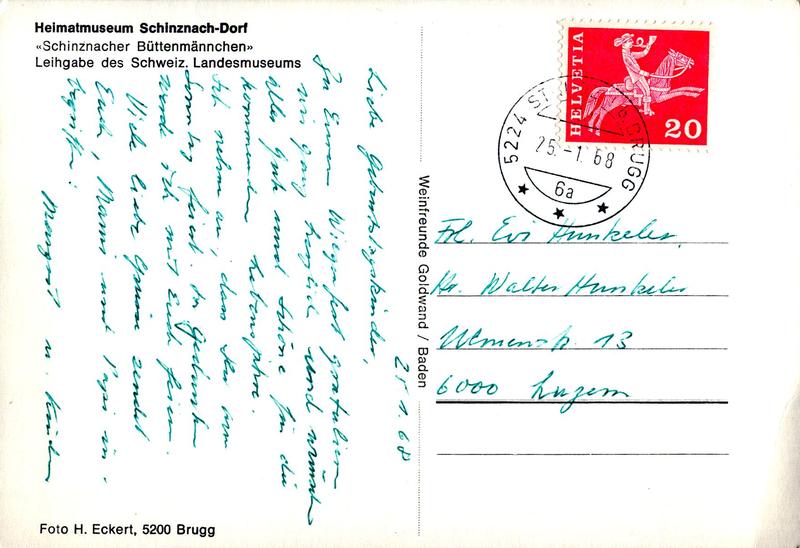 Heimatmuseum Schinznach-Dorf
«Schinznacher Büttenmännchen»
Leihgabe des Schweiz. Landesmuseums
25.1.68
Liebe Geburtstagskinder,
Zu Eurem Wiegenfest gratulieren
wir ganz herzlich und wünschen
alles Gute und Schöne für die
kommenden Lebensjahre.
Ich nehme an, dass Ihr am
Sonntag feiert. In Gedanken
werde ich mit Euch feiern.
Viele liebe Grüsse sendet
Euch, Mammi und Papi in-
begriffen:
Margrit u. Kinder
Foto H. Eckert, 5200 Brugg
Weinfreunde Goldwand / Baden
HELVETIA
20
5224 BRUGG
25.-1.68
6a
Frl. Evi Hunkeler,
Hr. Walter Hunkeler
Ulmenstr. 13
6000 Luzern